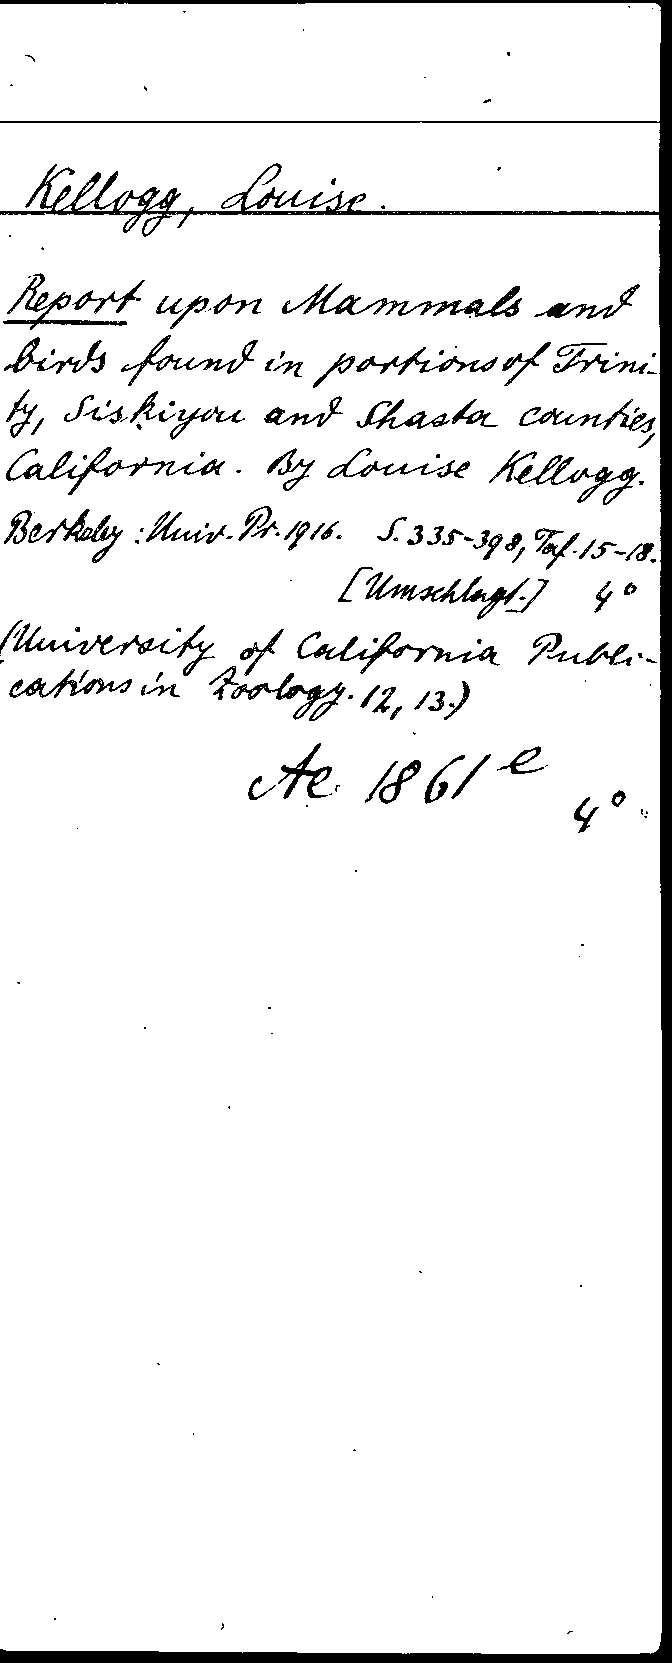 Kellogg, Louise.
Report upon Mammals and
birds found in portions of Trini-
ty, Siskiyou and Shasta counties,
California. By Louise Kellogg.
Berkeley: Univ. Pr. 1916. S. 335-398, Taf. 15-18.
[Umschlagt.] 4°
(University of California Publi-
cations in Zoology. 12, 13.)
Ae 1861 e
4°